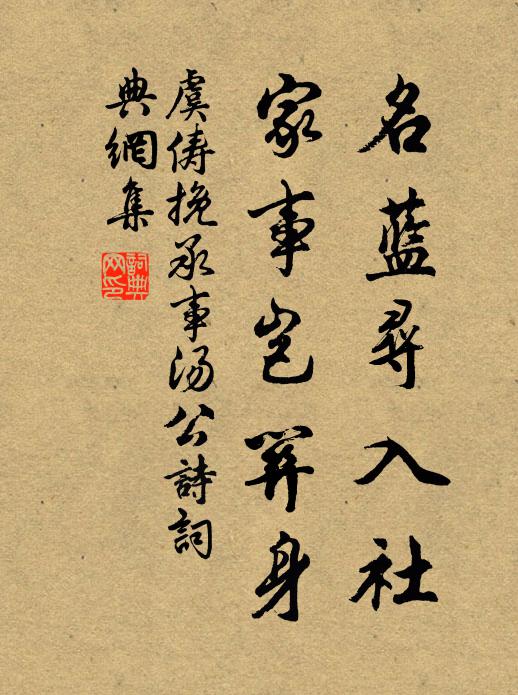 名藍尋入社
家事豈關身
虞儔挽承事湯公詩詞
典網集
詞典
网印